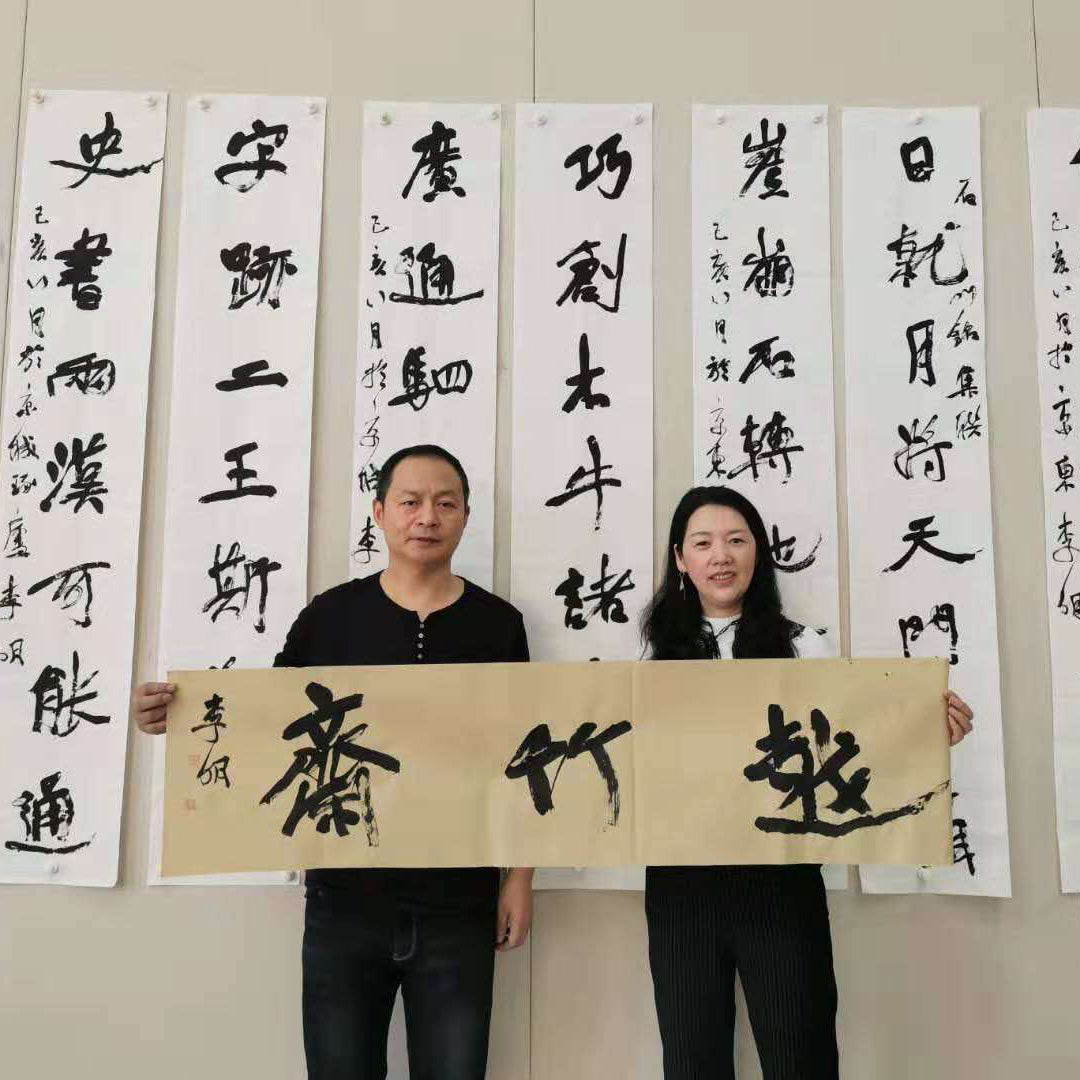 己亥八月於京東李明
日就月將天門
石門銘集聯
石轉
己亥八月於京東
巧創木牛諸
廣通駟
己亥八月於京
李
字跡工王斯
史書兩漢可能通
己亥八月於京城琢廬李明
越竹齋
李明